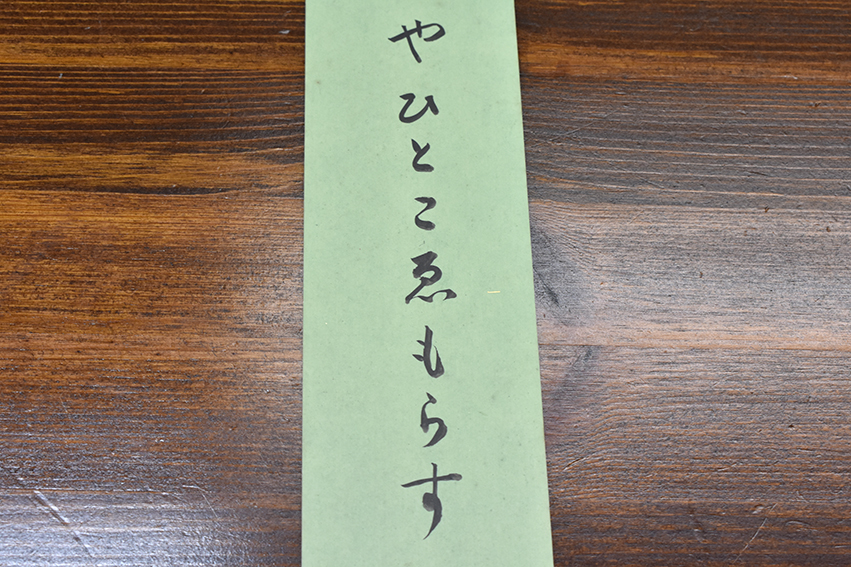 やひとこゑもらす